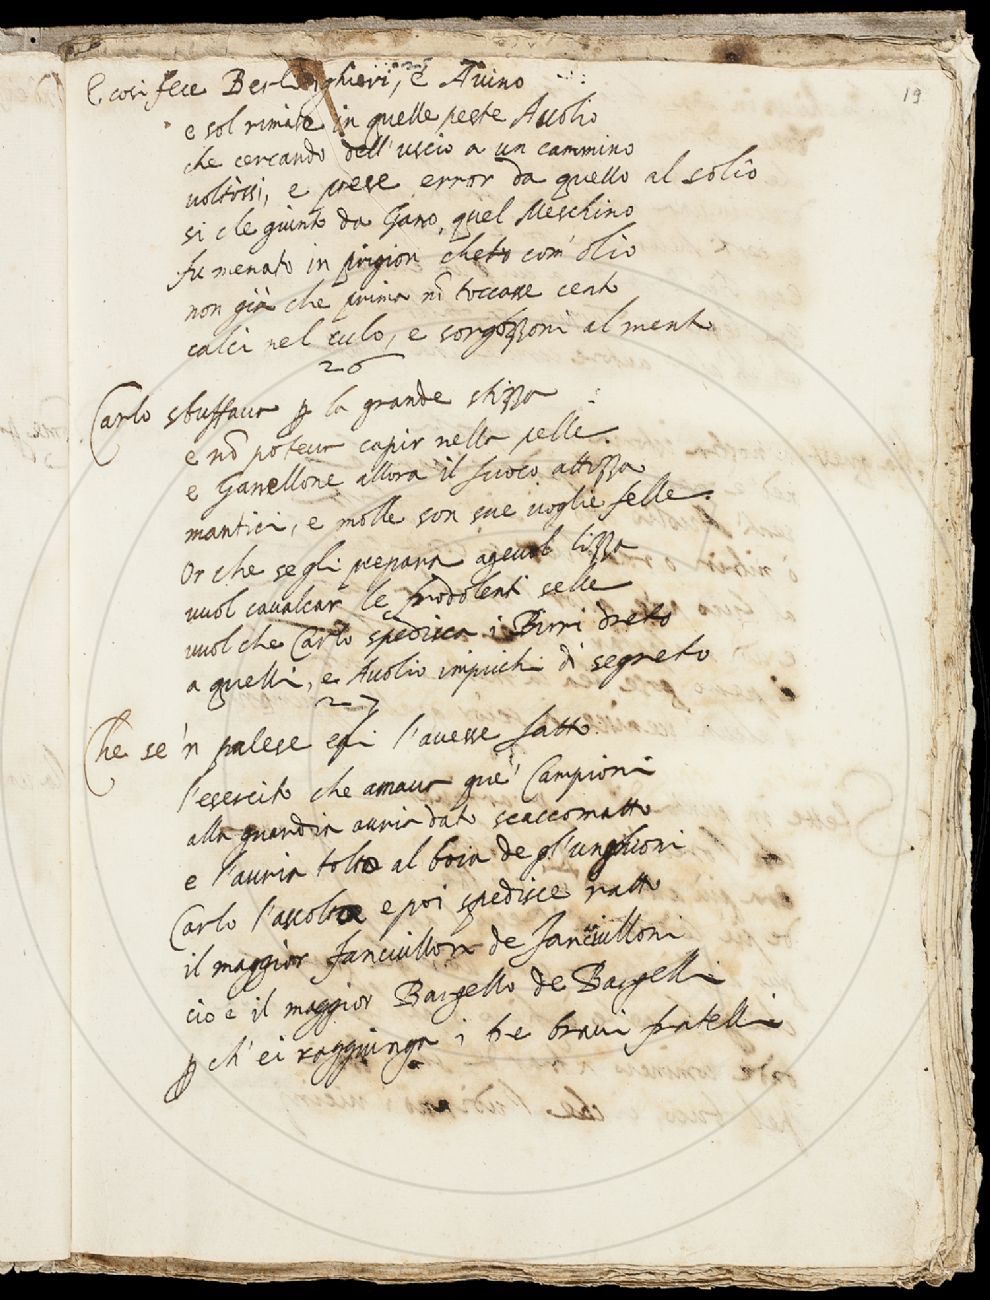 19
E così fece Berlinghieri, e Avino
e sol rimase in quelle peste Avolio
che cercando dell'uscio a un cammino
voltossi, e prese error da quello al solio
si che giunto da Gano, quel Meschino
fu menato in prigion cheto com'olio
non già che prima nō toccasse cento
calci nel culo, e sorgozzoni al mento
26
Carlo sbuffava ꝑ la grande stizza
e nō poteva capir nella pelle.
e Ganellone allora il fuoco attizza
mantici, e molle son sue voglie felle.
Or che se gli prepara agevol lizza
vuol cavalcar le frodolenti selle
vuol che Carlo spedisca i Birri dreto
a quelli, e Avolio impicchi di segreto
27
Che se 'n palese egli l'avesse fatto
l'esercito che amava que' Campioni
alla guardia avria dato scaccomatto
e l'avria tolto al boia de gl'unghioni
Carlo l'ascolta e poi spedisce ratto
il maggior fanciullon de fanciulloni
cio è il maggior Bargello de Bargelli
ꝑ ch'ei raggiunga i tre bravi fratelli